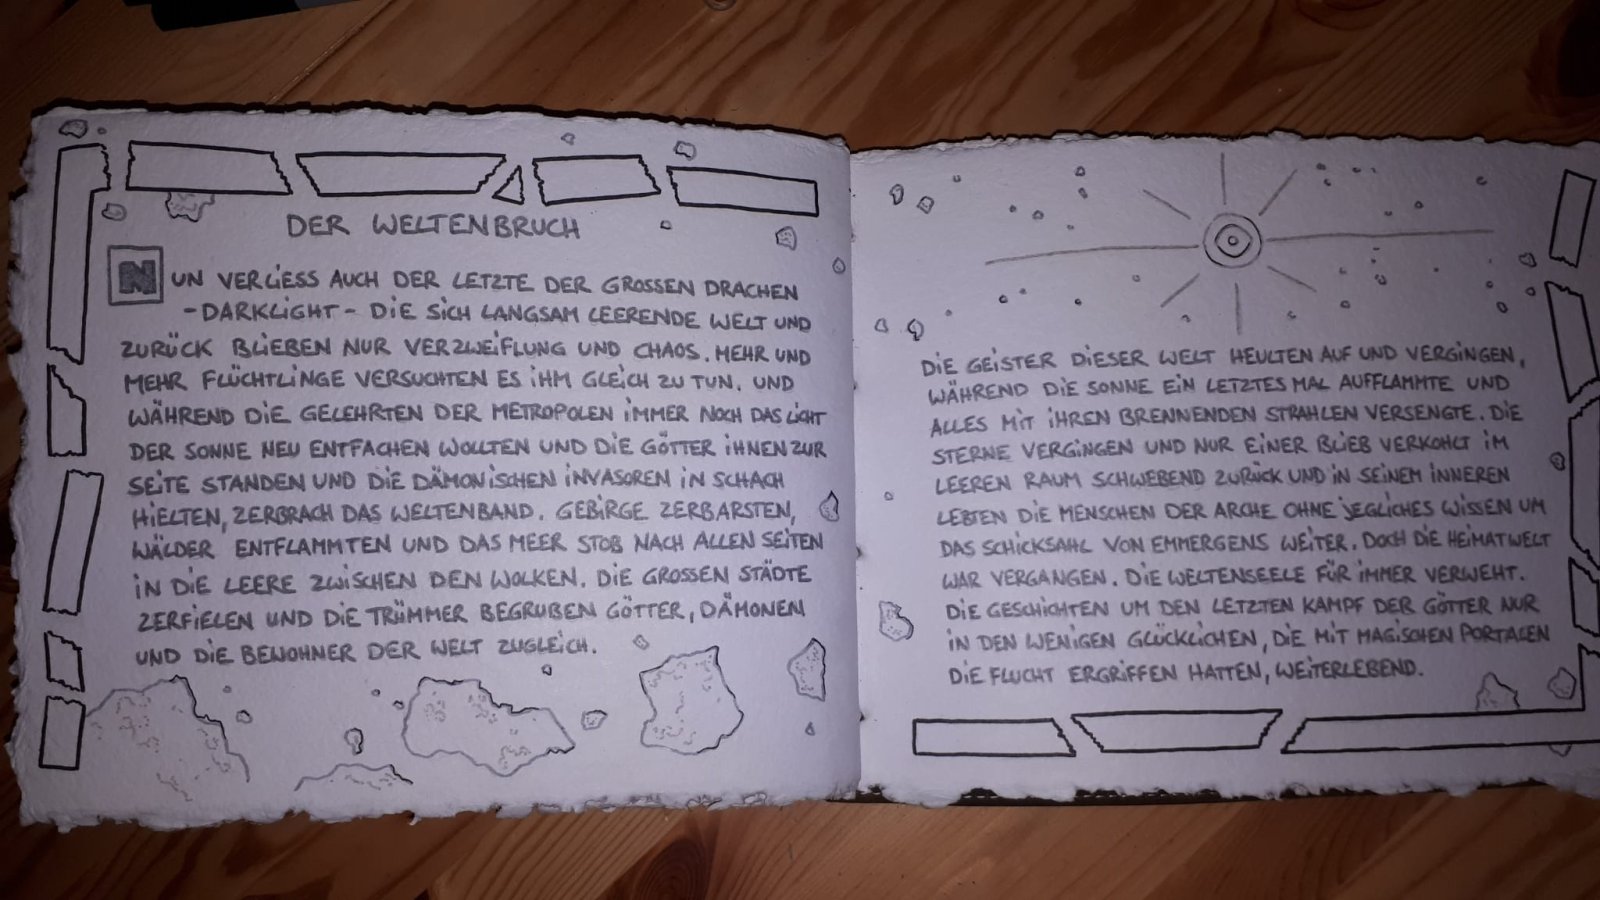 DER WELTENBRUCH
NUN VERLIESS AUCH DER LETZTE DER GROSSEN DRACHEN
-DARKLIGHT- DIE SICH LANGSAM LEERENDE WELT UND
ZURÜCK BLIEBEN NUR VERZWEIFLUNG UND CHAOS. MEHR UND
MEHR FLÜCHTLINGE VERSUCHTEN ES IHM GLEICH ZU TUN. UND
WÄHREND DIE GELEHRTEN DER METROPOLEN IMMER NOCH DAS LICHT
DER SONNE NEU ENTFACHEN WOLLTEN UND DIE GÖTTER IHNEN ZUR
SEITE STANDEN UND DIE DÄMONISCHEN INVASOREN IN SCHACH
HIELTEN, ZERBRACH DAS WELTENBAND. GEBIRGE ZERBARSTEN,
WÄLDER ENTFLAMMTEN UND DAS MEER STOB NACH ALLEN SEITEN
IN DIE LEERE ZWISCHEN DEN WOLKEN. DIE GROSSEN STÄDTE
ZERFIELEN UND DIE TRÜMMER BEGRUBEN GÖTTER, DÄMONEN
UND DIE BEWOHNER DER WELT ZUGLEICH.
DIE GEISTER DIESER WELT HEULTEN AUF UND VERGINGEN,
WÄHREND DIE SONNE EIN LETZTES MAL AUFFLAMMTE UND
ALLES MIT IHREN BRENNENDEN STRAHLEN VERSENGTE. DIE
STERNE VERGINGEN UND NUR EINER BLIEB VERKOHLT IM
LEEREN RAUM SCHWEBEND ZURÜCK UND IN SEINEM INNEREN
LEBTEN DIE MENSCHEN DER ARCHE OHNE JEGLICHES WISSEN UM
DAS SCHICKSAHL VON EMMERGENS WEITER. DOCH DIE HEIMATWELT
WAR VERGANGEN. DIE WELTENSEELE FÜR IMMER VERWEHT.
DIE GESCHICHTEN UM DEN LETZTEN KAMPF DER GÖTTER NUR
IN DEN WENIGEN GLÜCKLICHEN, DIE MIT MAGISCHEN PORTALEN
DIE FLUCHT ERGRIFFEN HATTEN, WEITERLEBEND.